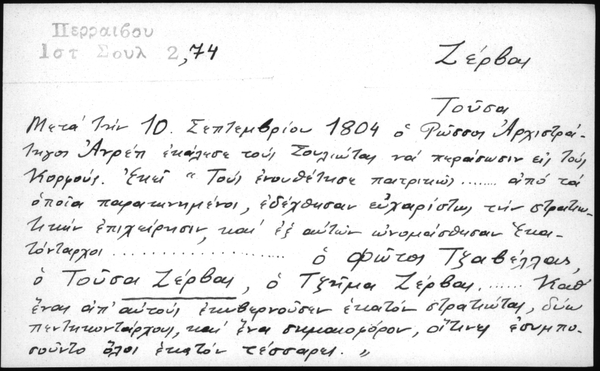 Περραιβου
Ιστ Σουλ 2,74
Ζέρβας
Τούσα
Μετά τήν 10. Σεπτεμβρίου 1804 ὁ Ρῶσσος Ἀρχιστρά-
τηγος Ἀνρέπ ἐκάλεσε τούς Σουλιώτας νά περάσωσιν εἰς τούς
Κορφούς. Ἐκεῖ " Τούς ἐνουθέτησε πατρικῶς ........ ἀπό τά
ὁποῖα παρακινημένοι, ἐδέχθησαν εὐχαρίστως τήν στρατιω-
τικήν ἐπιχείρησιν, καί ἐξ αὐτῶν ὠνομάσθησαν Ἑκα-
τόνταρχοι ........................ ὁ Φῶτος Τζαβέλλας,
ὁ Τούσα Ζέρβας, ὁ Τζῆμα Ζέρβας. ...... Καθ
ἕνας ἀπ' αὐτούς ἐκυβερνοῦσεν ἑκατόν στρατιώτας, δύω
πεντηκοντάρχους, καί ἕνα σημαιοφόρον, οἵτινες ἐσυμπο-
σοῦντο ὅλοι ἑκατόν τέσσαρες. "